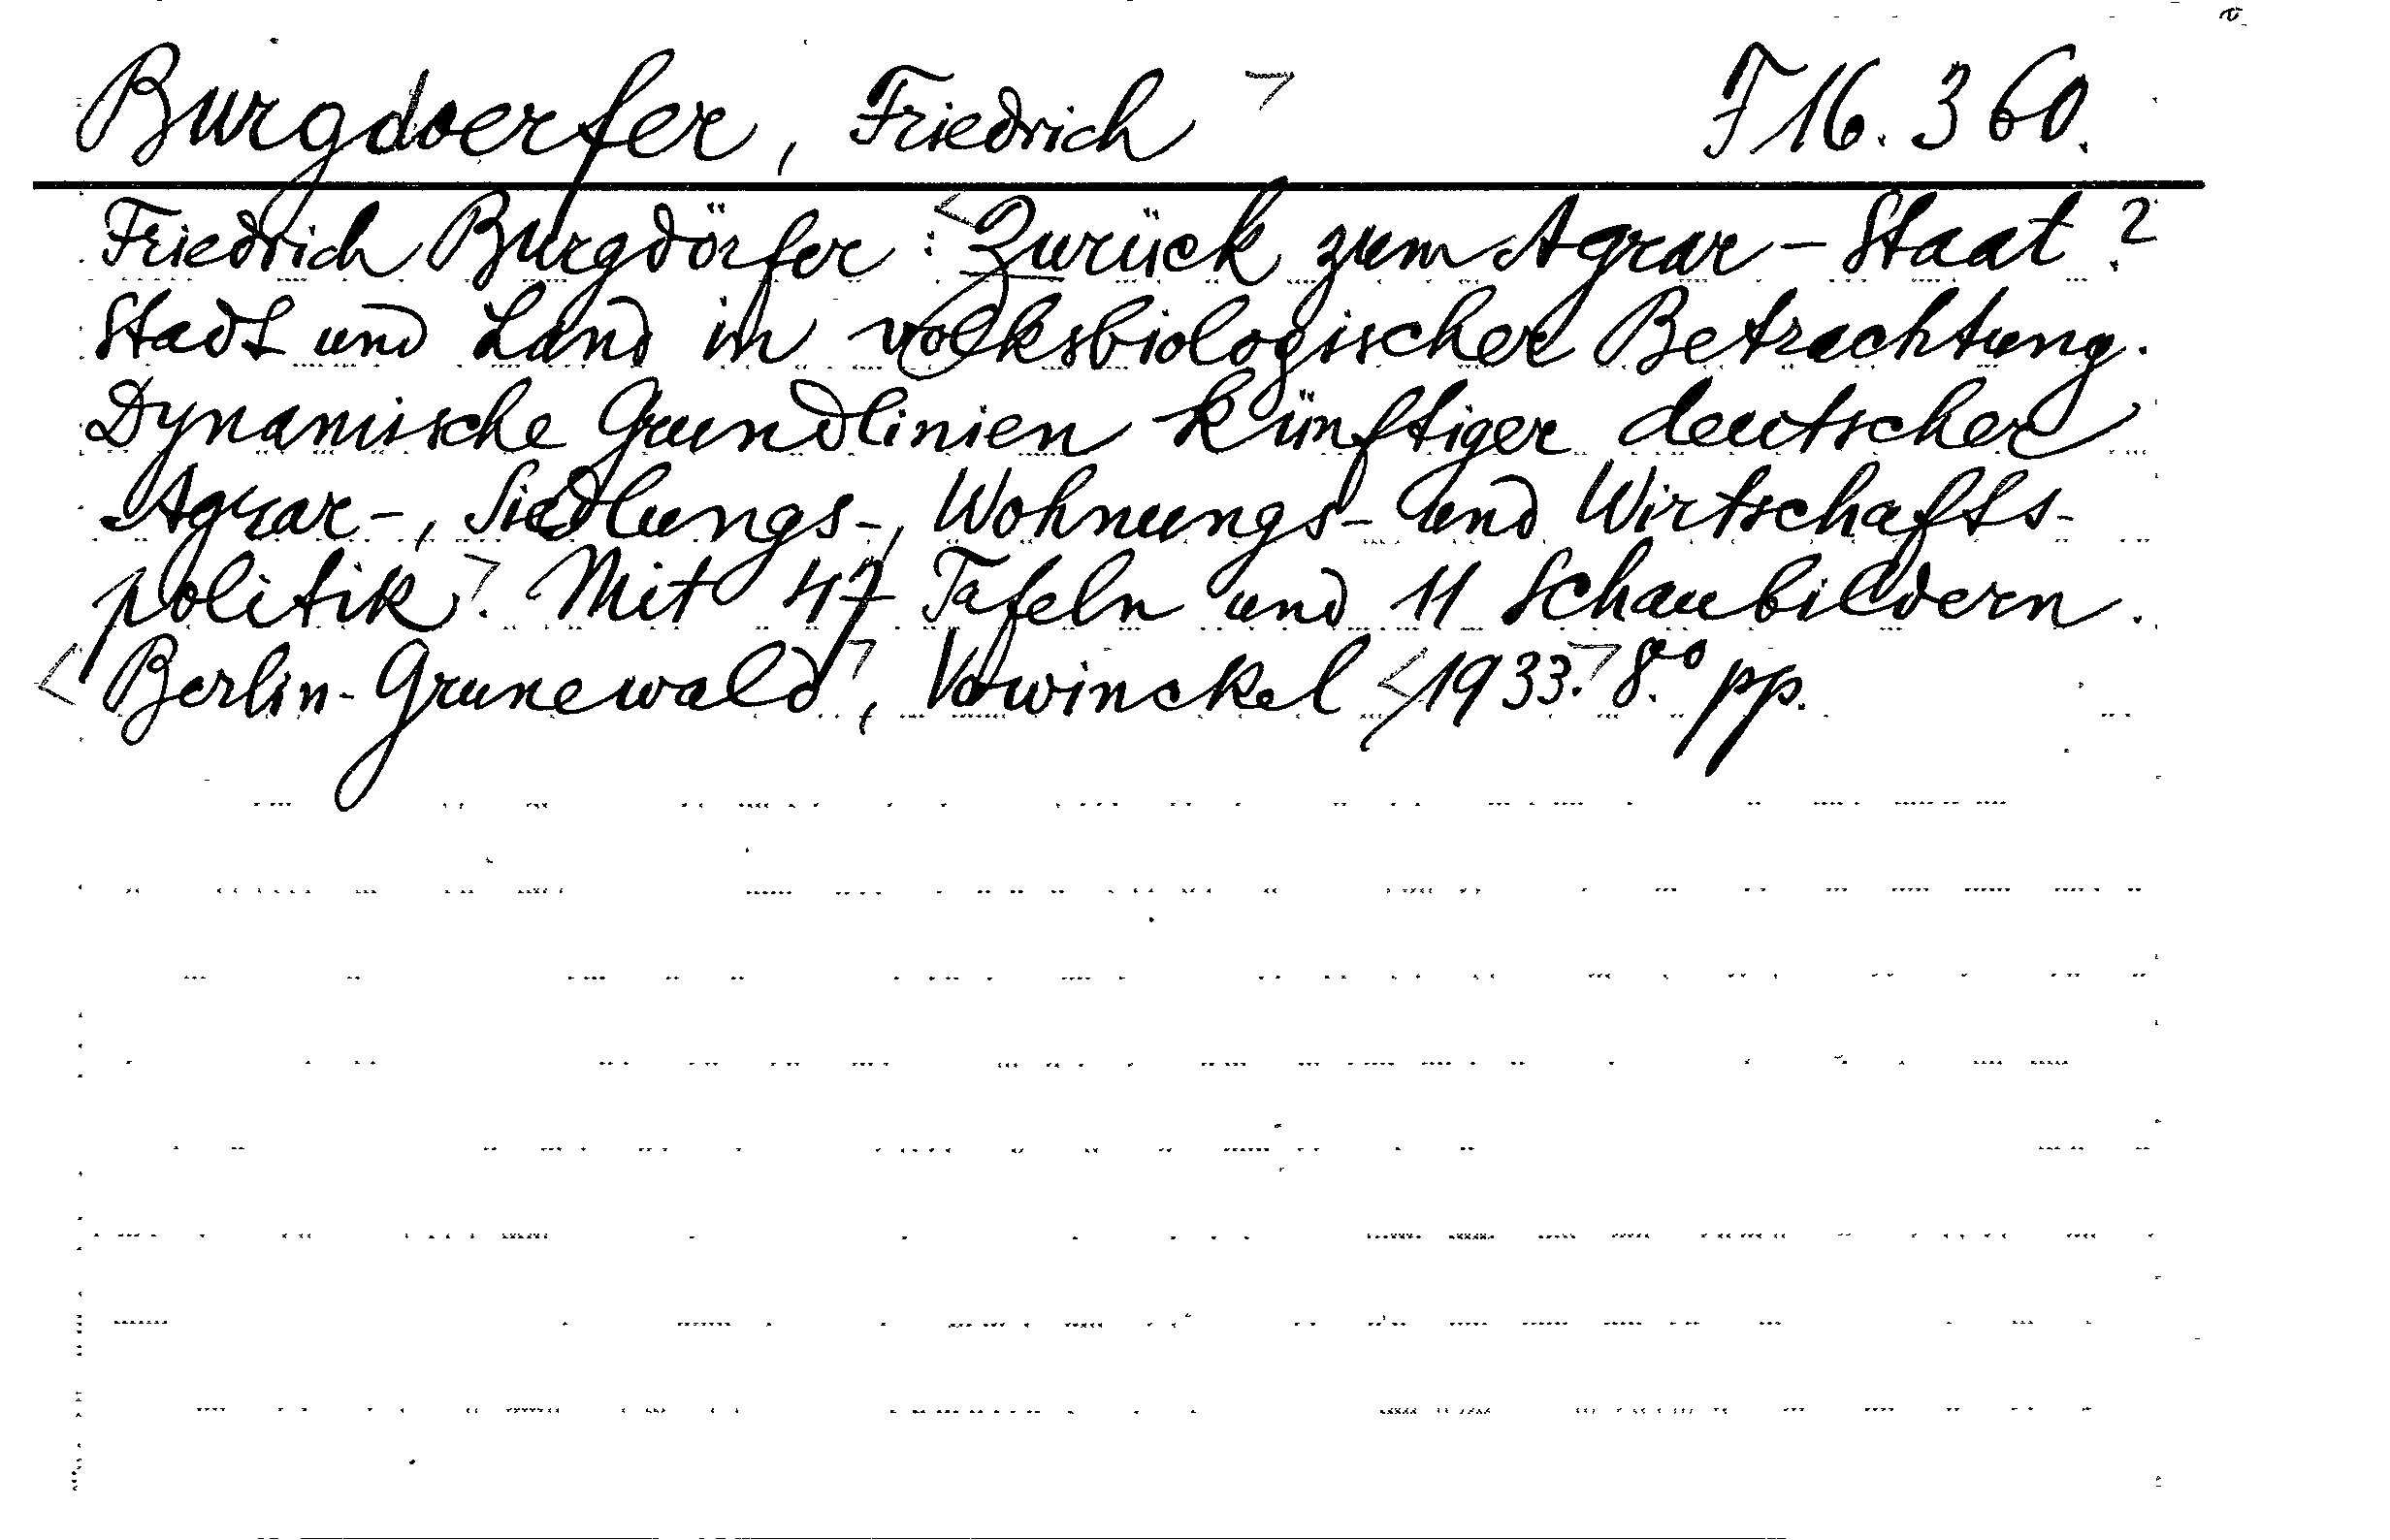 Burgdoerfer, Friedrich F 16.360.
Friedrich Burgdörfer: Zurück zum Agrar-Staat?
Stadt und Land in volksbiologischer Betrachtung.
Dynamische Grundlinien künftiger deutscher
Agrar-, Siedlungs-, Wohnungs- und Wirtschafts-
politik. Mit 47 Tafeln und 11 Schaubildern.
Berlin-Grunewald, Vowinckel 1933. 8.° pp.